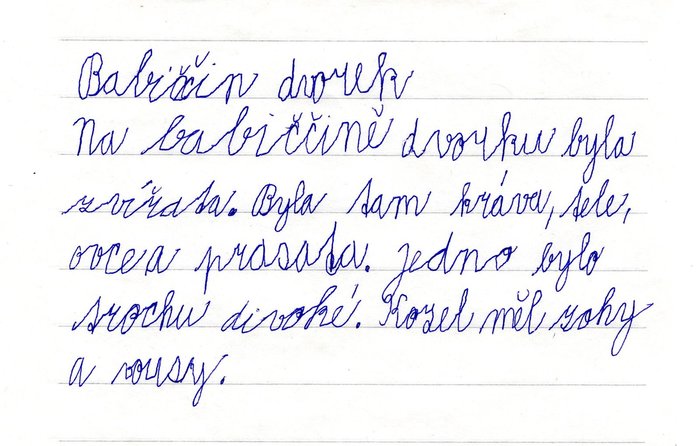 Babiččin dvorek
Na babiččině dvorku byla
zvířata. Byla tam kráva, tele,
ovce a prasata. Jedno bylo
trochu divoké. Kozel měl rohy
a vousy.